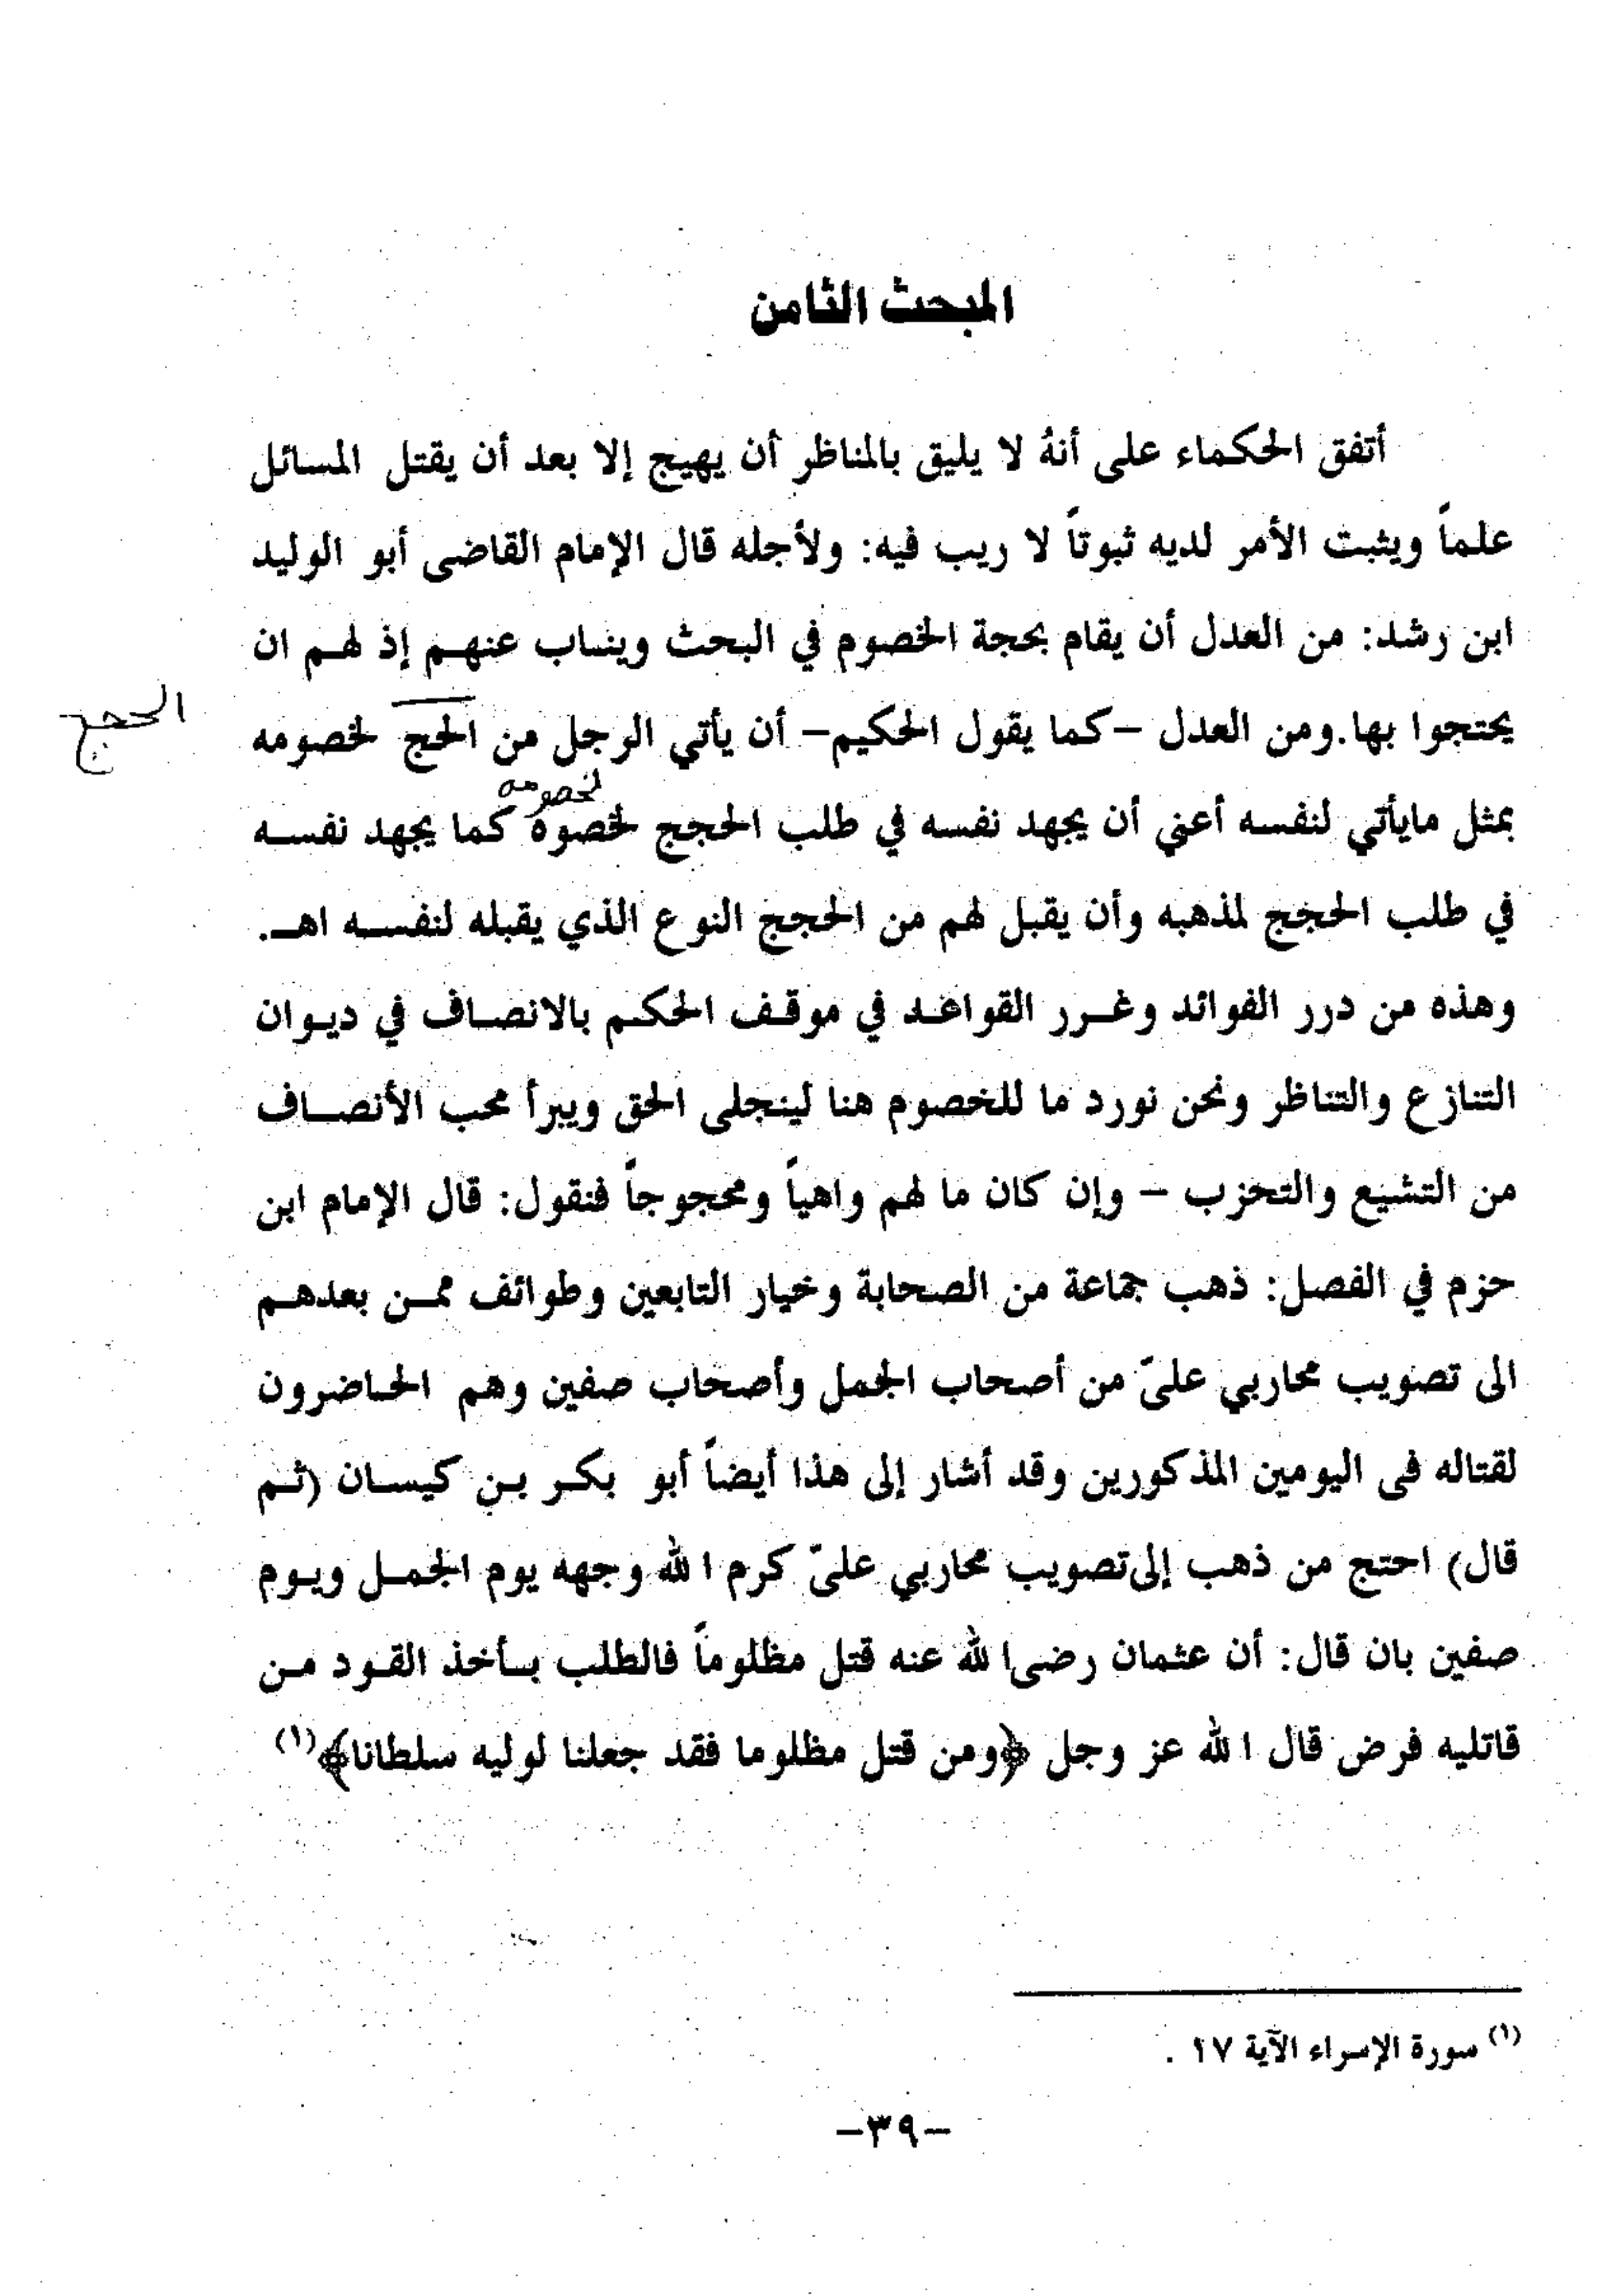 المبحث الثامن
أتفق الحكماء على أنهُ لا يليق بالمناظر أن يهيج إلا بعد أن يقتل المسائل
علماً ويثبت الأمر لديه ثبوتاً لا ريب فيه: ولأجله قال الإمام القاضى أبو الوليد
ابن رشد: من العدل أن يقام بحجة الخصوم في البحث ويناب عنهم إذ لهم ان
يحتجوا بها.ومن العدل –كما يقول الحكيم– أن يأتي الرجل من الحج لخصومه
الحجج
لخصومه
بمثل مايأتي لنفسه أعني أن يجهد نفسه في طلب الحجج لخصوه كما يجهد نفسه
في طلب الحجج لمذهبه وأن يقبل لهم من الحجج النوع الذي يقبله لنفسه اهـ.
وهذه من درر الفوائد وغرر القواعد في موقف الحكم بالانصاف في ديوان
التنازع والتناظر ونحن نورد ما للخصوم هنا لينجلى الحق ويبرأ محب الأنصاف
من التشيع والتحزب – وإن كان ما لهم واهياً ومحجوجاً فنقول: قال الإمام ابن
حزم في الفصل: ذهب جماعة من الصحابة وخيار التابعين وطوائف ممن بعدهم
الى تصويب محاربي علىّ من أصحاب الجمل وأصحاب صفين وهم الحاضرون
لقتاله فى اليومين المذكورين وقد أشار إلى هذا أيضاً أبو بكر بن كيسان (ثم
قال) احتج من ذهب إلى تصويب محاربي علىّ كرم الله وجهه يوم الجمل ويوم
صفين بان قال: أن عثمان رضى الله عنه قتل مظلوماً فالطلب بأخذ القود من
قاتليه فرض قال الله عز وجل ﴿ومن قتل مظلوما فقد جعلنا لوليه سلطانا﴾(١)
(١) سورة الإسراء الآية ١٧ .
–٣٩–